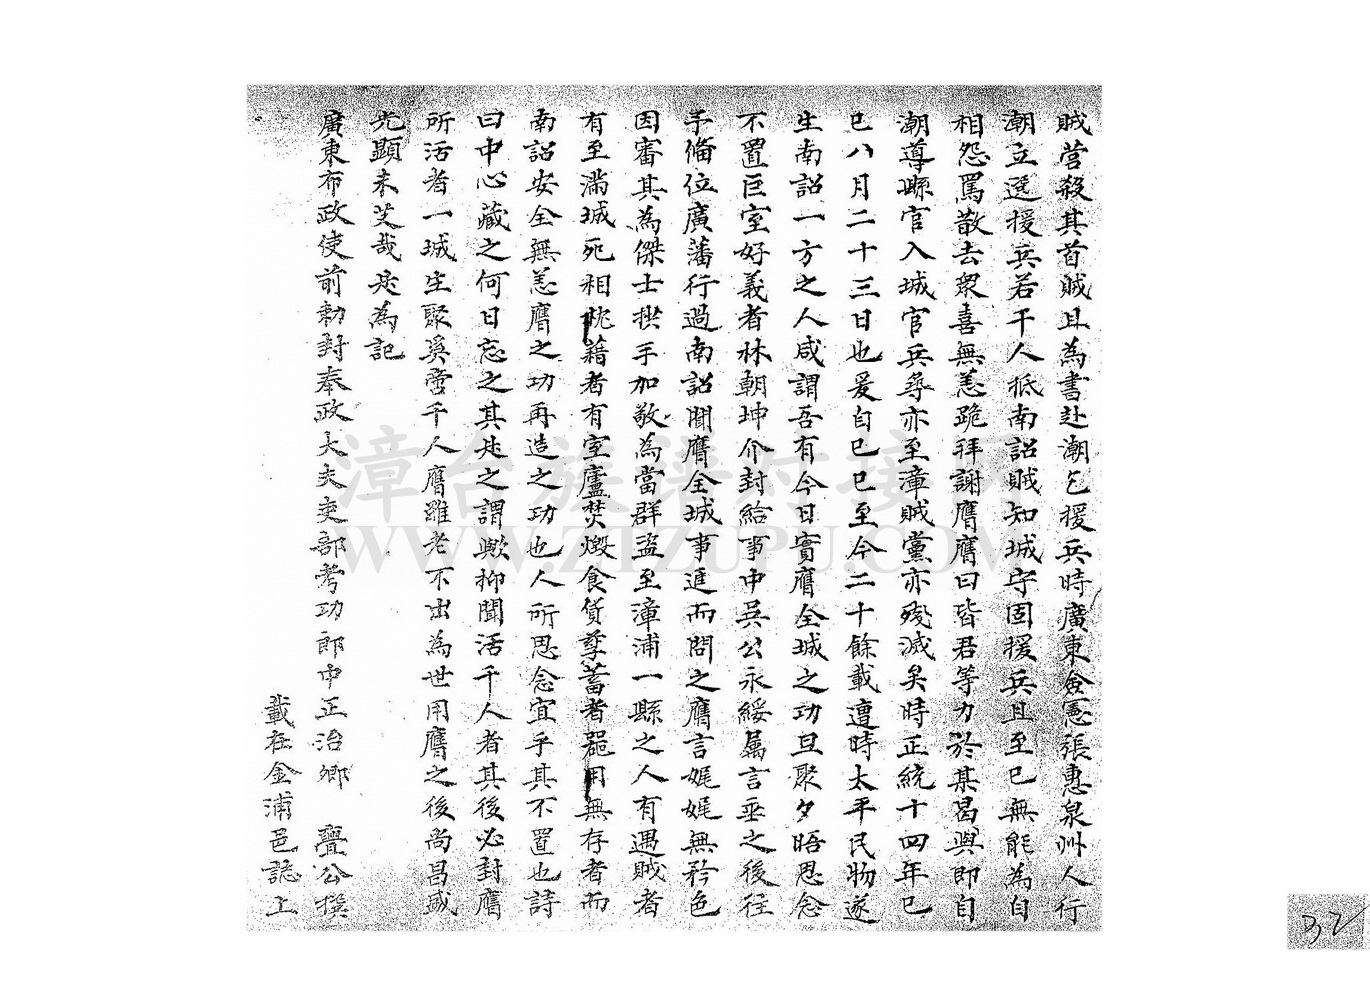 賊营殺其首賊且為書赴潮乞援兵時廣東僉憲張惠泉州人行
潮立選援兵若干人抵南詔賊知城守固援兵且至已無能為自
相怨罵散去眾喜無恙跪拜謝膺膺曰皆君等力於某曷與即自
潮導縣官入城官兵尋亦至漳賊黨亦殘滅矣時正統十四年已
巳八月二十三日也爰自已巳至今二十餘載遭時太平民物遂
生南詔一方之人咸謂吾有今日實膺全城之功旦聚夕晤思念
不置巨室好義者林朝坤介封給事中吳公永綏屬言垂之後往
手俻位廣藩行過南詔聞膺全城事進而問之膺言娓娓無矜色
因審其為傑士拱手加敬為當群盗至漳浦一縣之人有遇賊者
有至滿城死相眺藉者有室廬焚燬食貨孳蓄者罷用無存者而
南詔安全無恙膺之功再造之功也人所思念宜乎其不置也詩
曰中心藏之何日忘之其是之謂歟抑聞活千人者其後必封膺
所活者一城生聚奚啻千人膺雖老不出為世用膺之後尚昌盛
光顯未艾哉是為記
廣東布政使前勅封奉政大夫吏部考功郎中正治卿 亹公撰
載在金浦邑誌上
漳台族譜对接网
WWW.ZTZUPU.COM
32